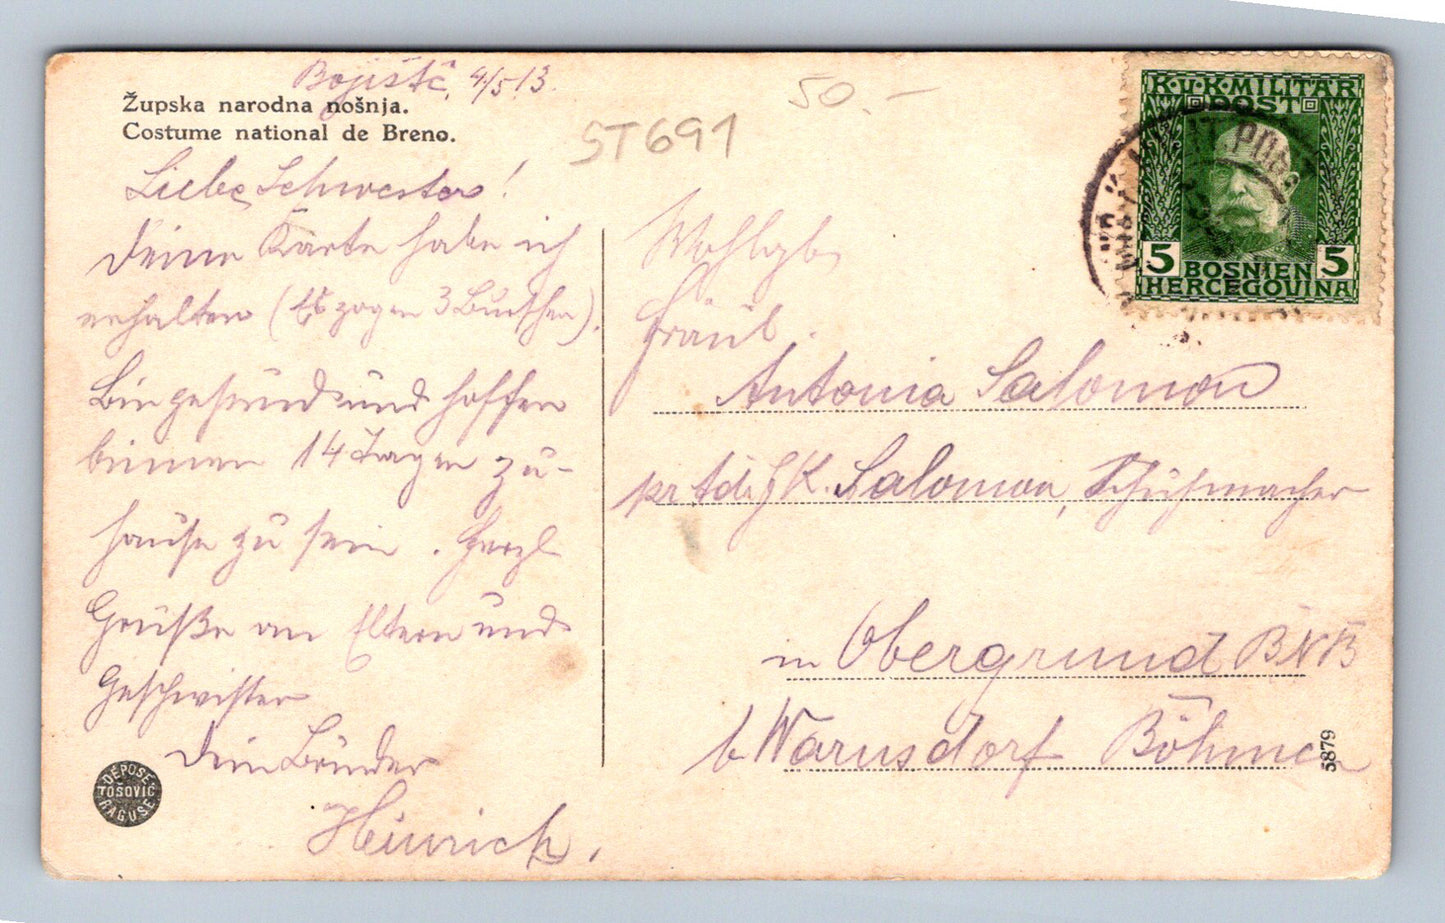 Bojište, 4/5 13.
Župska narodna nošnja.
Costume national de Breno.
ST691
50.-
Liebe Schwester!
Deine Karte habe ich
erhalten (Es zogen 3 Burschen).
Bin gesund und hoffen
binnen 14 Tagen zu-
hause zu sein. Herzl
Grüße an Eltern und
Geschwister
Dein Bruder
Heinrich.
K.u.K. MILITÄR
POST
5 5
BOSNIEN
HERCEGOVINA
Wohlgb
Fräul.
Antonia Salomon
K. Salomon, Schuhmacher
in Obergrund BNB
b Warnsdorf Böhmen
5879
DÉPOSÉ
TOSOVIĆ
RAGUSE